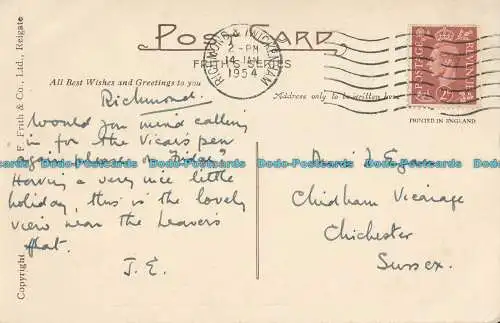 POST CARD
FRITH SERIES
RICHMOND & TWICKENHAM
2 - PM
14 JU
1954
POSTAGE REVENUE
All Best Wishes and Greetings to you
Address only to be written here
PRINTED IN ENGLAND
Copyright F. Frith & Co., Ltd., Reigate
Richmond.
Would you mind calling
in for the Vicar's pen
again please on Friday
Having a very nice little
holiday, this is the lovely
view near the Leavers
flat.
J. E.
J Egan
Chidham Vicarage
Chichester
Sussex.
Dodo-Postcards Dodo-Postcards Dodo-Postcards Dodo-Postcards